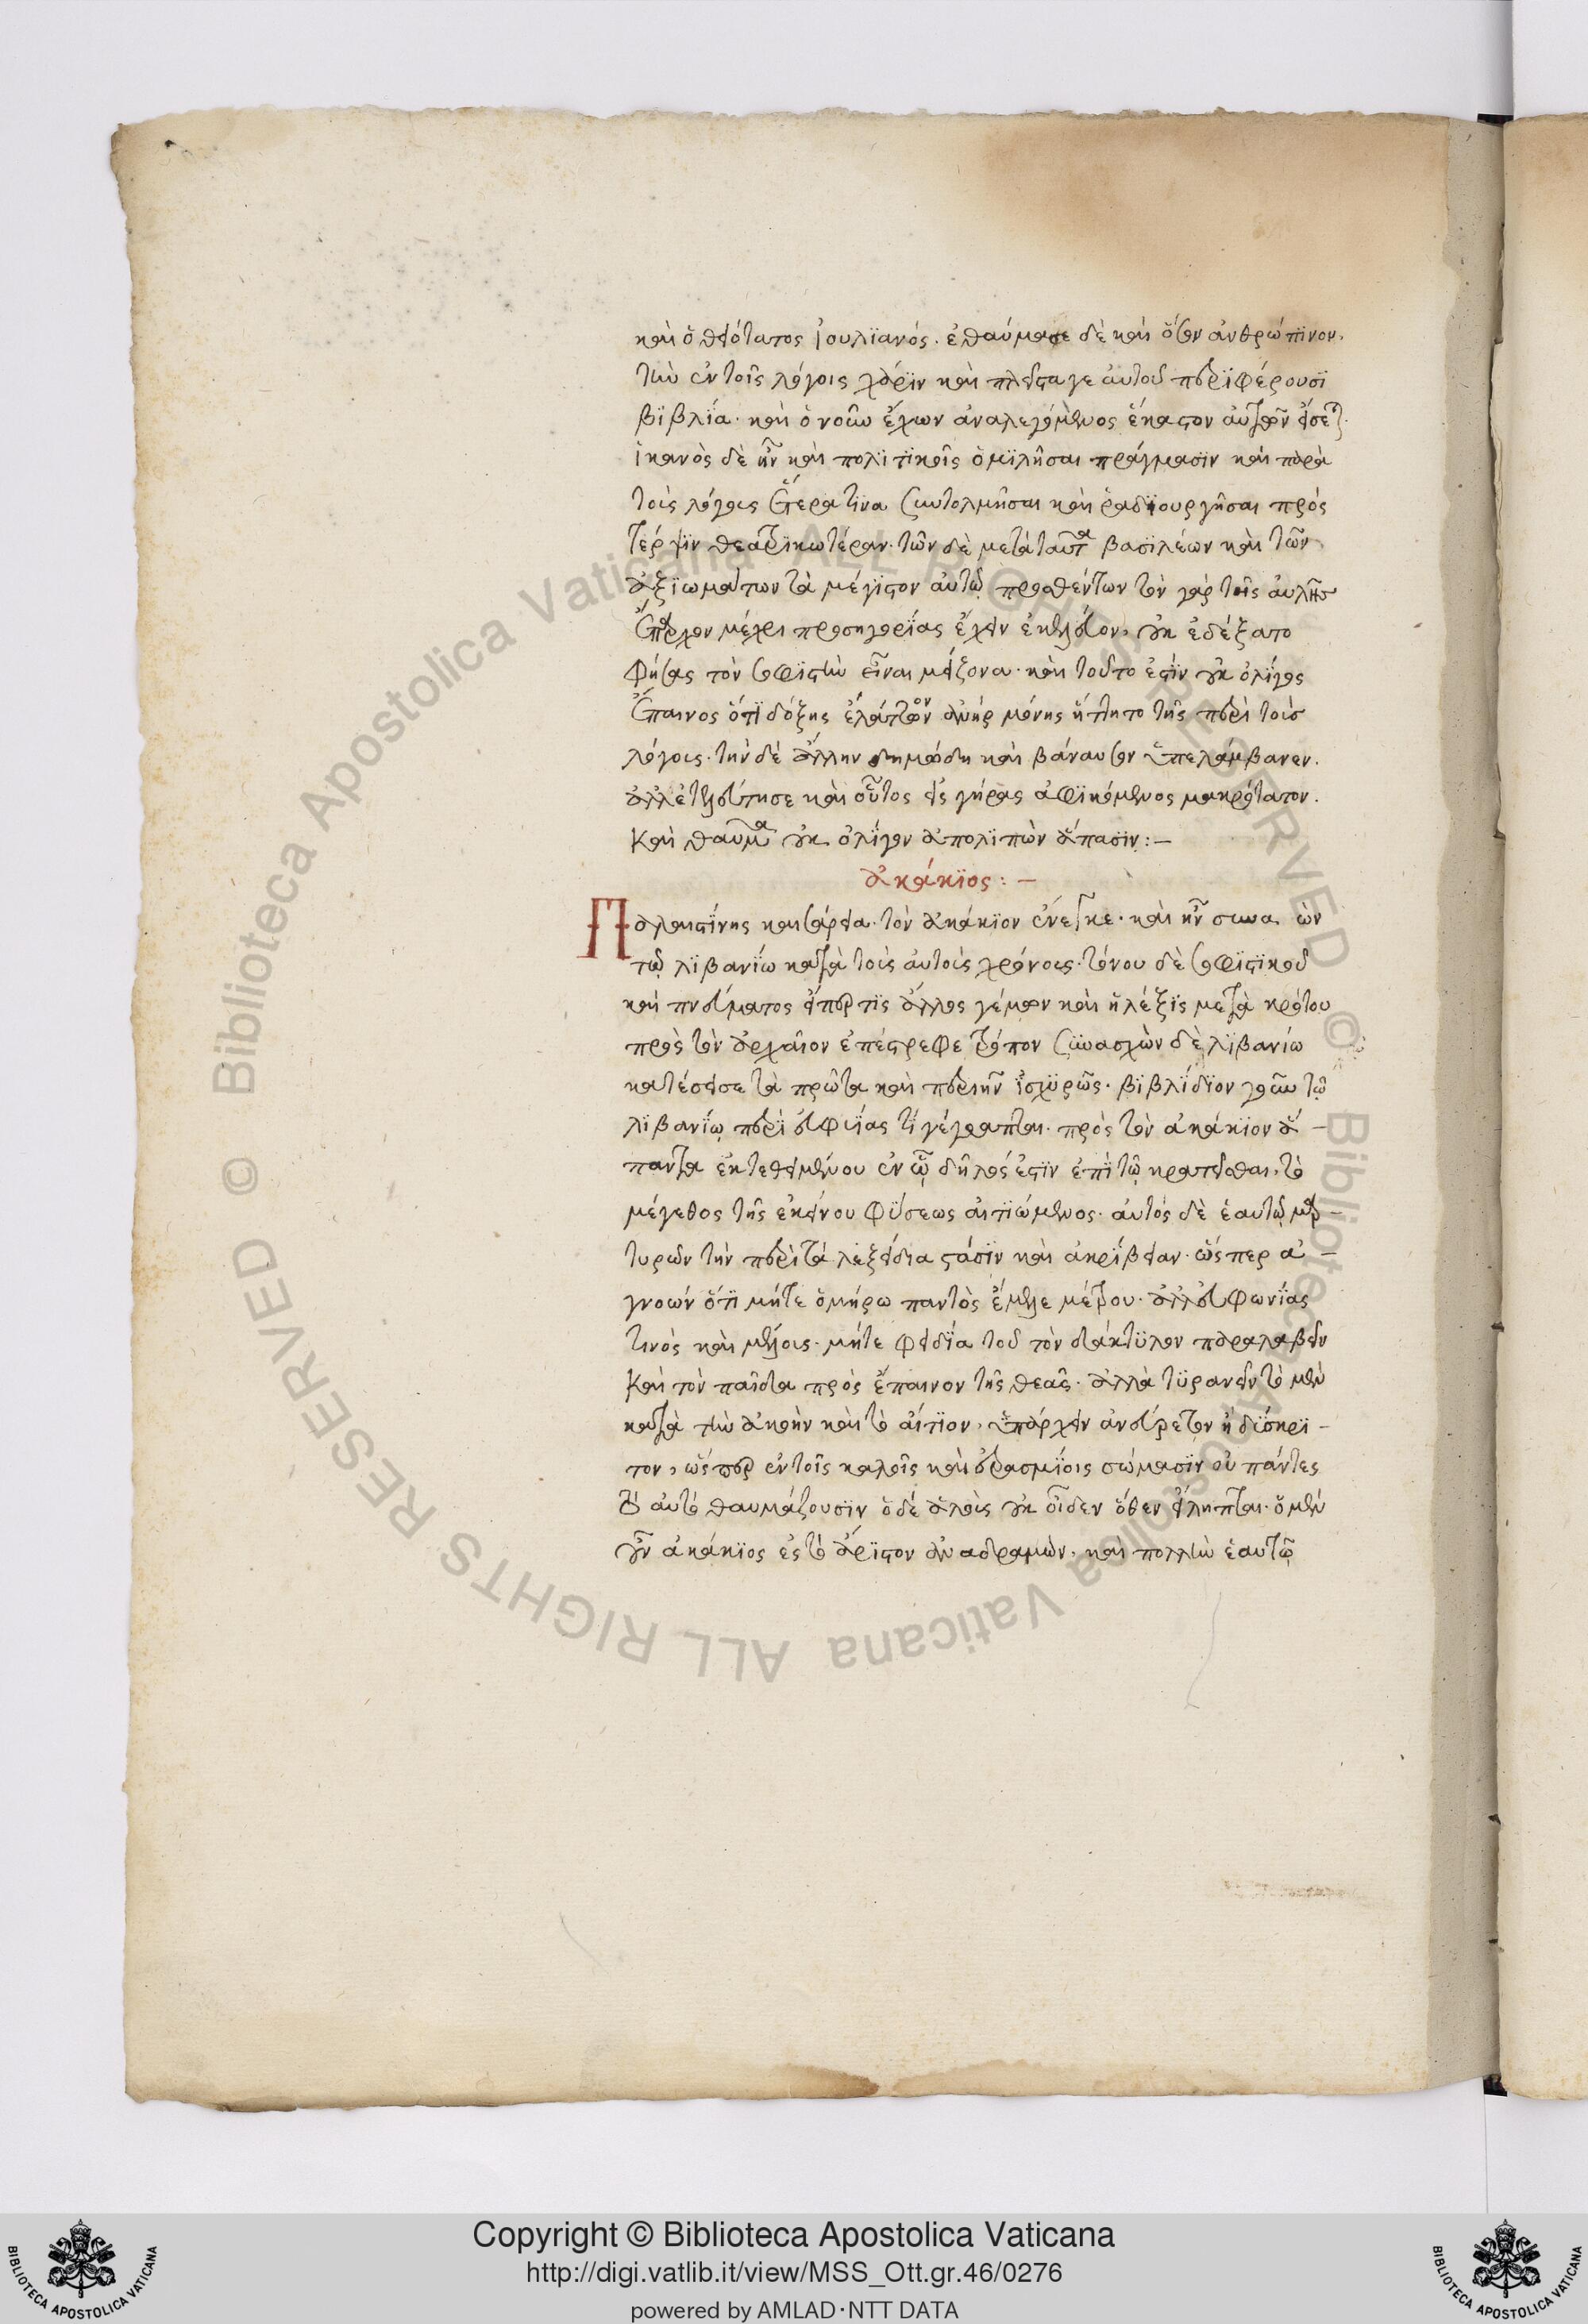 καὶ ὁ θειότατος ἰουλϊανός. ἐθαύμασε δὲ καὶ ὅσον ἀνθρώπϊνον.
τὴν ἐν τοῖς λόγοις χάρϊν καὶ πλεῖστα γε αὐτοῦ περϊφέρουσϊ
βϊβλΐα. καὶ ὁ νοῦν ἔχων ἀναλεγόμενος ἕκαστον αὐτῶν εἴσεται.
ἱκανὸς δὲ ἦν καὶ πολϊτϊκοῖς ὁμϊλῆσαι πράγμασϊν καὶ παρὰ
τοὺς λόγους ἕτερα τϊνα συντολμῆσαι καὶ ῥαδϊουργῆσαι πρὸς
τέρψϊν θεατρϊκωτέραν. τῶν δὲ μετὰ ταῦτα βασϊλέων καὶ τῶν
ἀξϊωμάτων τὰ μέγϊστον αὐτῷ προσθέντων τὸν γὰρ τοῖς αὐλῆς
ἔπαρχον μέχρι προσηγορΐας ἔχειν ἐκέλευον, οὐκ ἐδέξατο
φήσας τὸν σοφϊστὴν εἶναι μείζονα. καὶ τοῦτο ἐστϊν οὐκ ὀλΐγος
ἔπαινος ὅτϊ δόξης ἐλάττων ὢν ἀνὴρ μόνης ἥττητο τῆς περὶ τοὺς
λόγους. τὴν δὲ ἄλλην δημώδη καὶ βάναυσον ὑπελάμβανεν.
ἀλλ' ἐτελεύτησε καὶ οὗτος εἰς γήρας ἀφϊκόμενος μακρότατον.
Καὶ θαῦμα οὐκ ὀλΐγον ἀπολϊπὼν ἅπασϊν:—
ἀκάκϊος:—
Παλαιστΐνης καισάρεια. τὸν ἀκάκϊον ἐνέγκε. καὶ ἦν συνα ὼν
τῷ λϊβανΐω κατὰ τοὺς αὐτοὺς χρόνους. τόνου δὲ σοφϊστϊκοῦ
καὶ πνεύματος εἴπερ τϊς ἄλλος γέμων καὶ ἡ λέξϊς μετὰ κρότου
πρὸς τὸν ἀρχαῖον ἐπέστρεφε τρόπον συνασχὼν δὲ λϊβανΐω
κατέσεισε τὰ πρῶτα καὶ περιῆν ἰσχϋρῶς. βϊβλΐδϊον γοῦν τῷ
λϊβανΐῳ περϊ εὐφυΐας τϊ γέγραπται. πρὸς τὸν ἀκάκϊον ἅ—
παντα ἐκτεθειμένου ἐν ᾧ δῆλος ἐστϊν ἐπὶ τῷ κρατεῖσθαι, τὸ
μέγεθος τῆς ἐκείνου φύσεως αἰτϊώμενος. αὐτὸς δὲ ἑαυτῷ μαρ—
τυρῶν τὴν περὶ τὰ λεξείδια στάσϊν καὶ ἀκρΐβειαν. ὥσπερ ἀ—
γνοῶν ὅτϊ μήτε ὁμήρω παντὸς ἔμελε μέτρου. ἀλλ' εὐφωνΐας
τινὸς καὶ μέλους. μήτε φειδΐα τοῦ τὸν δάκτϋλον παραλαβεῖν
Καὶ τὸν πόδα πρὸς ἔπαινον τῆς θεᾶς. ἀλλὰ τϋρανεῖν τὸ μὲν
κατὰ τὴν ἀκοὴν καὶ τὸ αἴτϊον, ὑπάρχειν ἀνεύρετον ἢ δύσκρϊ—
τον, ὥσπερ ἐν τοῖς καλοῖς καὶ ἐρασμΐοις σώμασϊν οὐ πάντες
Τὸ αὐτὸ θαυμάζουσϊν ὁ δὲ ἁλοὺς οὐκ οἶδεν ὅθεν εἴληπται. ὁ μὲν
οὖν ἀκάκϊος ἐς τὸ ἄρϊστον ἀναδραμὼν. καὶ πολλὴν ἑαυτῷ
Copyright © Biblioteca Apostolica Vaticana
http://digi.vatlib.it/view/MSS_Ott.gr.46/0276
powered by AMLAD·NTT DATA
BIBLIOTECA APOSTOLICA VATICANA
BIBLIOTECA APOSTOLICA VATICANA
© Biblioteca Apostolica Vaticana ALL RIGHTS RESERVED © Biblioteca Apostolica Vaticana ALL RIGHTS RESERVED